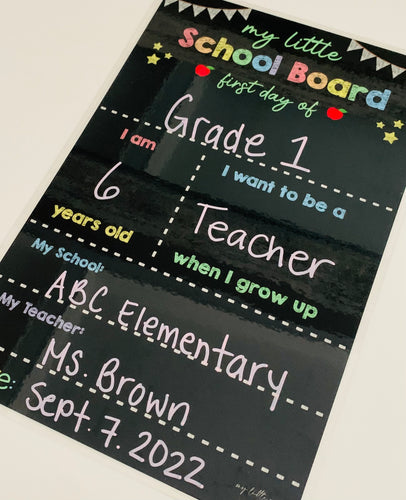 my little
School Board
first day of
Grade 1
I am
6
years old
I want to be a
Teacher
when I grow up
My School:
ABC Elementary
My Teacher:
Ms. Brown
Sept. 7. 2022
my little